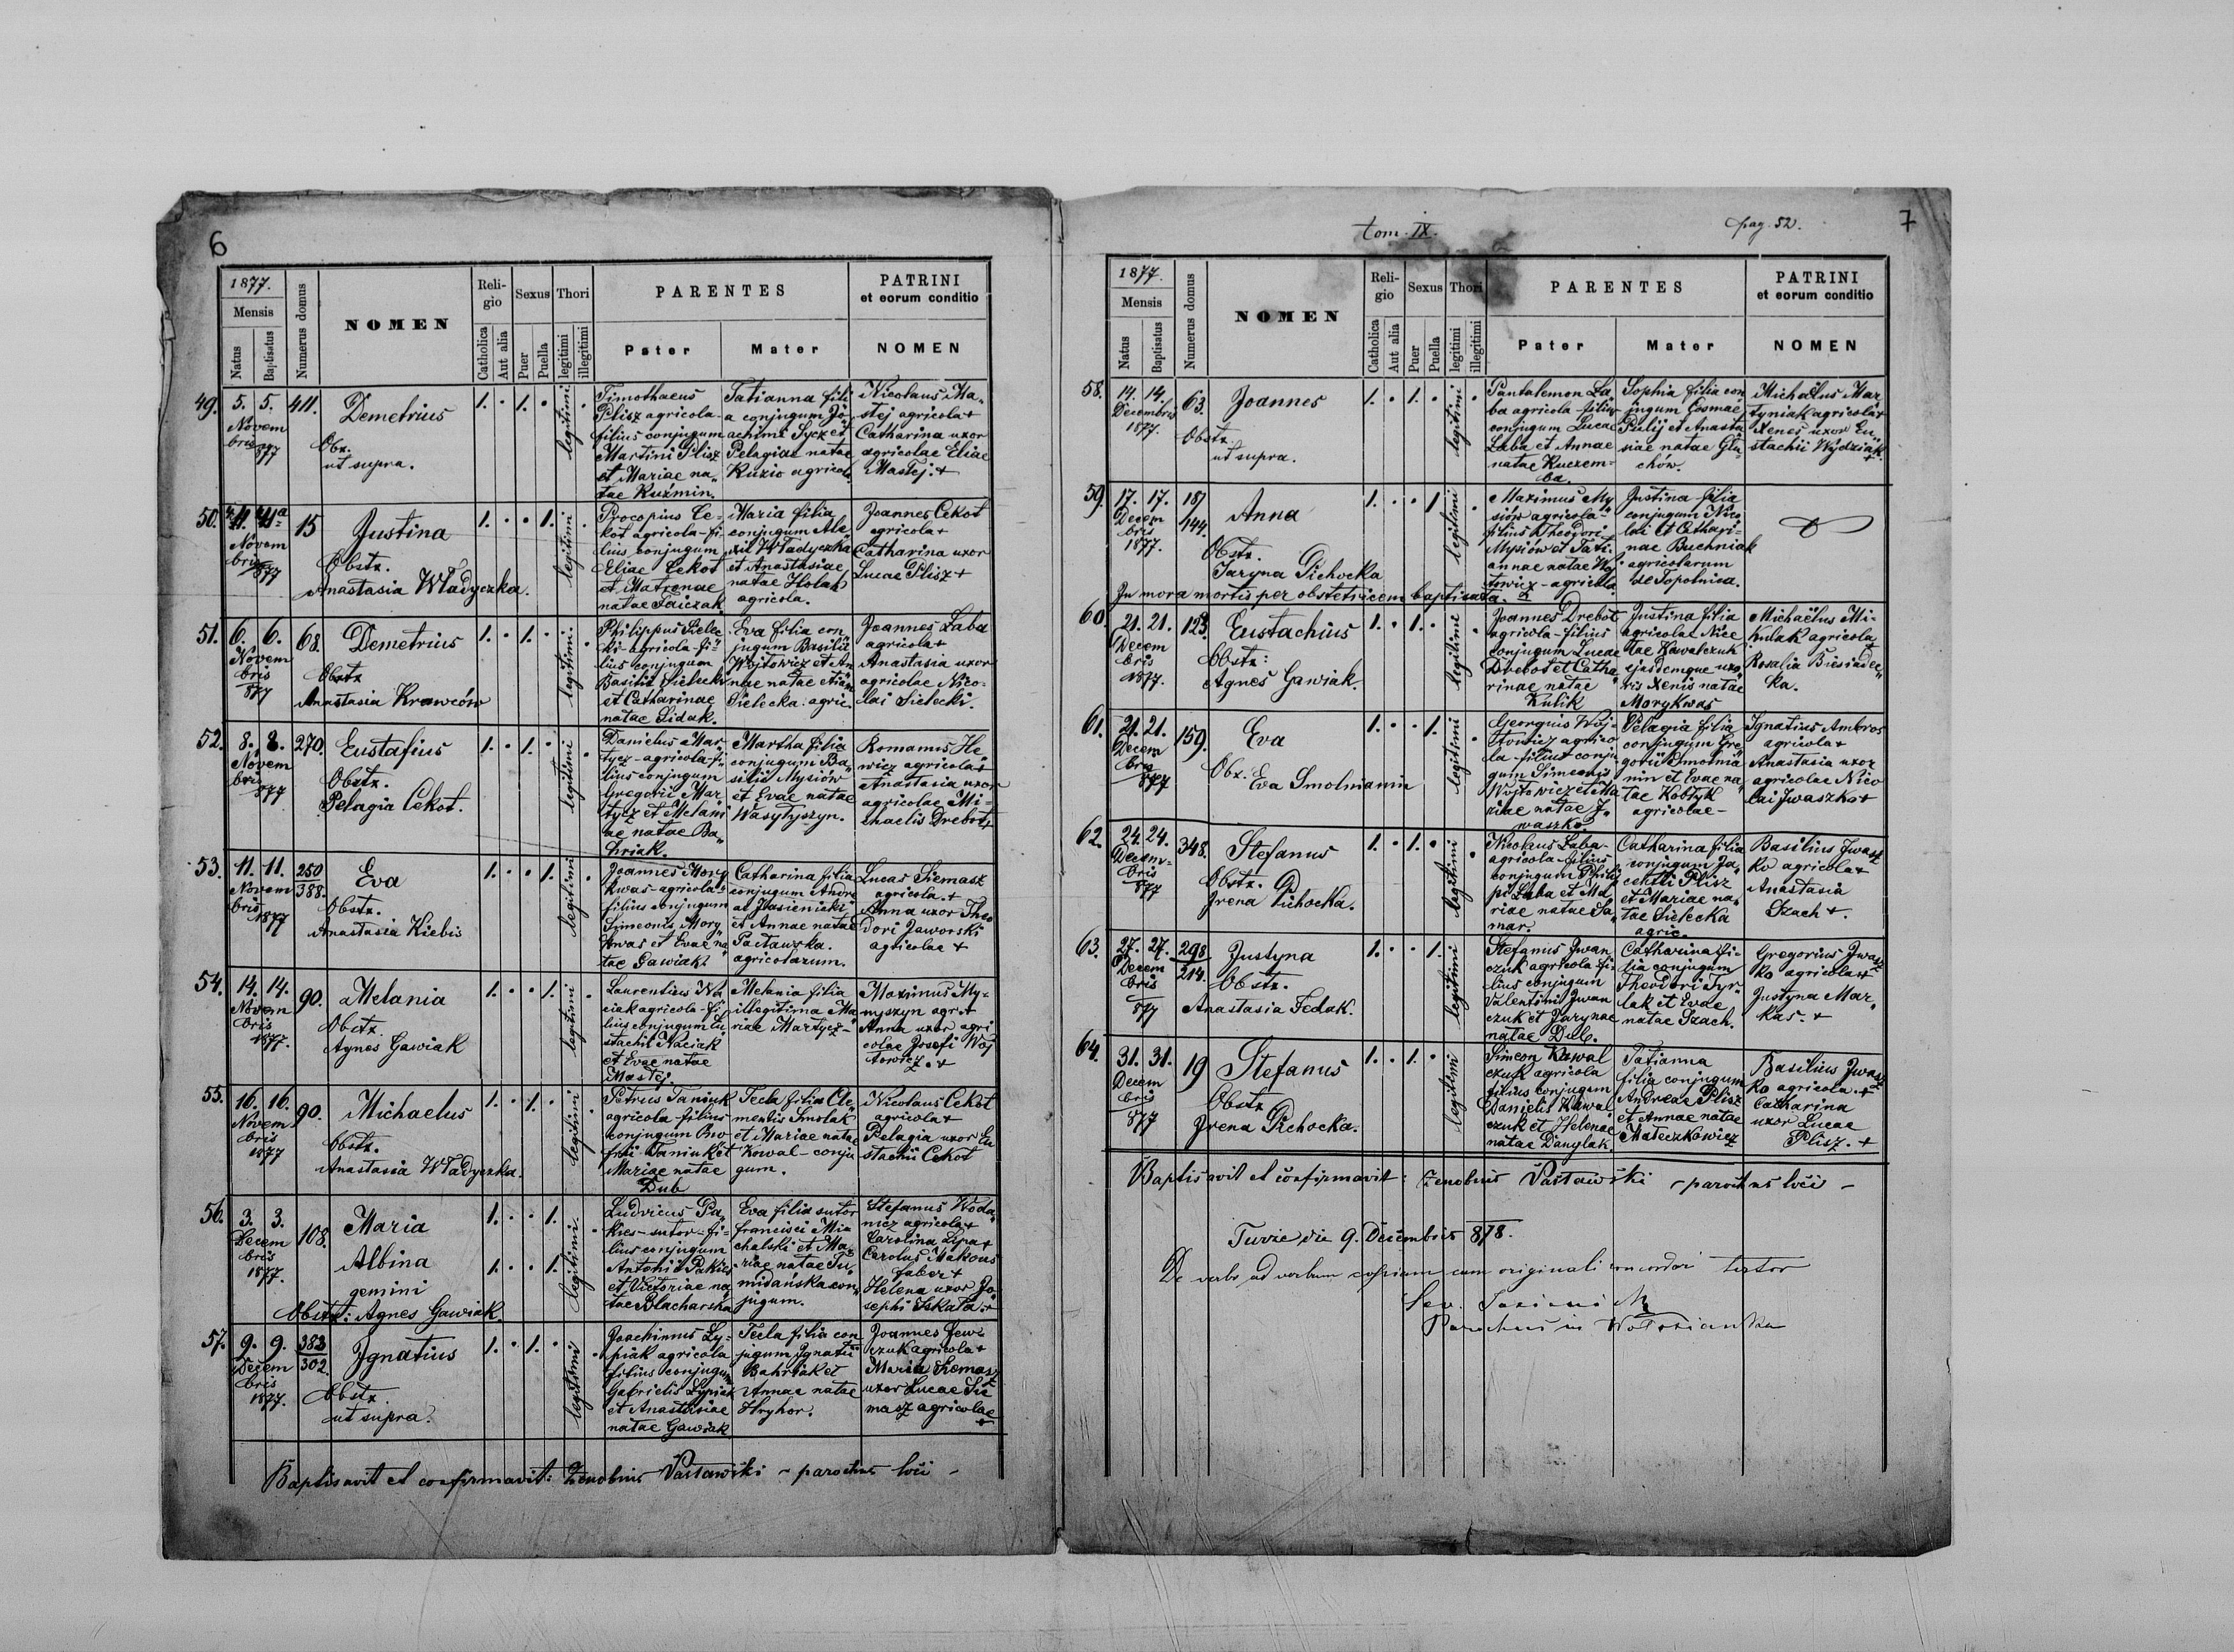 6
1877.
Mensis
Natus
Baptisatus
Numerus domus
NOMEN
Reli-
gio
Catholica
Aut alia
Sexus
Puer
Puella
Thori
legitimi
illegitimi
PARENTES
Pater
Mater
PATRINI
et eorum conditio
NOMEN
49. 5. 5. 411. Demetrius 1. . 1. . legitimi .
Novem
bris
877
Obx.
ut supra.
Timothaeus
Plisz agricola
filius conjugum
Martini Plisz
et Mariae na„
tae Kuźmin.
Tatianna fili
a conjugum Jo
achimi Sycz et
Pelagiae natae
Kuzio agricol.
Nicolaus Ma„
stej agricola +
Catharina uxor
agricolae Eliae
Mastej. +
50. 11. 11. 15 Justina 1. . . 1. legitimi .
Novem
bris
877
Obstx.
Anastasia Władyczka.
Procopius Ce-
kot agricola-fi-
lius conjugum
Eliae Cekot
et Matronae
natae Faiczak
Maria filia
conjugum Ale
xii Władyczka
et Anastasiae
natae Holah
agricola.
Joannes Cekot
agricola +
Catharina uxor
Lucae Plisz +
51. 6. 6. 68. Demetrius 1. . 1. . legitimi. .
Novem
bris
877
Obstx
Anastasia Krawców
Philippus Sielec
ki-agricola-fi-
lius conjugum
Basilii Sielecki
et Catharinae
natae Sidak.
Eva filia con„
jugum Basilii
Wojtowicz et An
nae natae
Sielecka. agric.
Joannes Łaba
agricola +
Anastasia uxor
agricolae Nico-
lai Sielecki.
52. 8. 8. 270. Eustafius 1. . 1. . legitimi .
Novem
bris
877
Obstx.
Pelagia Cekot.
Danielus Mar„
tycz-agricola-fi„
lius conjugum
Gregorii Mar
tycz et Melani
ae natae Ba„
hriak.
Martha filia
conjugum Ba„
silii Mysiów
et Evae natae
Wasyłyszyn.
Romanus He„
wicz agricola +
Anastasia uxor
agricolae Mi-
chaelis Drebot +
53. 11. 11. 250
388. Eva 1. . . 1. legitimi .
Novem
bris
1877
Obstx.
Anastasia Kiebis
Joannes Mory
kwas-agricola-
filius conjugum
Simeonis Mory„
kwas et Evae na
tae Gawiak.
Catharina filia
conjugum Andre
ae Jasieniski
et Annae natae
Pacławska.
agricolarum.
Lucas Siemasz
agricola. +
Anna uxor Theo
dori Jaworski
agricolae +
54. 14. 14. 90. Melania 1. . . 1. legitimi .
Novem
bris
1877.
Obstx
Agnes Gawiak
Laurentius Na
ciak agricola-fi
lius conjugum Eu
stachii Naciak
et Evae natae
Mastej.
Melania filia
illegitima Ma
riae Martycz-
Maximus My-
myszyn agr. +
Anna uxor agri
colae Josefi Woj
towicz. +
55. 16. 16. 90. Michaelus 1. . 1. . legitimi .
Novem
bris
1877
Obstx.
Anastasia Władyczka.
Petrus Taniuk
agricola-filius
conjugum Ono
frii Taniuk et
Mariae natae
Dub
Tecla filia Cle
mentis Smolak
et Mariae natae
Kowal-conju
gum.
Nicolaus Cekot
agricola +
Pelagia uxor Eu
stachii Cekot
56. 3. 3. 108. Maria 1. . . 1. legitimi. .
Decem
bris
1877.
Albina 1. . . 1.
gemini
Obstx: Agnes Gawiak.
Ludvicus Pa„
kies-sutor-fi-
lius conjugum
Antonii Pakies
et Victoriae na„
tae Blacharska
Eva filia sutor
francisci Mi
chalski et Ma„
riae natae Tu„
midańska con„
jugum.
Stefanus Woda„
nicz agricola +
Carolina Lipa +
Carolus Makous
faber +
Helena uxor Jo„
sephi Iskała. +
57. 9. 9. 383
302. Ignatius 1. . 1. . legitimi .
Decem
bris
1877.
Obstx
ut supra.
Joachimus Ly-
piak agricola
filius conjugum
Gabrielis Lypiak
et Anastasiae
natae Gawiak
Tecla filia con
jugum Ignatii
Bahriak et
Annae natae
Hryhor.
Joannes Jew
czuk agricola +
Maria Thomasz
uxor Lucae Sie
masz agricolae
+
Baptisavit et confirmavit: Zenobius Pasławski - parochus loci -
tom. IX.
pag. 52.
7
1877.
Mensis
Natus
Baptisatus
Numerus domus
NOMEN
Reli-
gio
Catholica
Aut alia
Sexus
Puer
Puella
Thori
legitimi
illegitimi
PARENTES
Pater
Mater
PATRINI
et eorum conditio
NOMEN
58. 14. 14. 63. Joannes 1. . 1. . legitimi .
Decembris
1877.
Obstx.
ut supra.
Pantalemon Ła„
ba agricola-filius
conjugum Lucae
Łaba et Annae
natae Kuczem-
ba.
Sophia filia con
jugum Cosmae
Pilij et Anasta
siae natae Glu-
chów.
Michaelus Mar
tyniak agricola +
Xenes uxor Eu„
stachii Wydziak.
+
59. 17. 17. 187
144. Anna 1. . . 1. legitimi .
Decem
bris
1877.
Obstx.
Jaryna Pichocka
In mora mortis per obstetricem baptisata.
Maximus My
siów agricola-
filius Theodori
Mysiów et Tati-
annae natae Woj
towicz-agricola.
Justina filia
conjugum Nico
lai et Cathari-
nae Buchniak
agricolarum
de Topolnica.
60. 21. 21. 123. Eustachius 1. . 1. . legitimi .
Decem
bris
1877.
Obstx:
Agnes Gawiak.
Joannes Drebot
agricola-filius
conjugum Lucae
Drebot et Catha„
rinae natae
Kulik
Justina filia
agricolae Nice
tae Kowalczuk
ejusdemque uxo„
ris Xenis natae
Morykwas
Michaelus Mi-
kulak agricola
+
Rosalia Biesiadec„
ka.
61. 21. 21. 159. Eva 1. . . 1. legitimi .
Decem
bris
877
Obx. Eva Smolnianin
Georgius Woj-
towicz agrico
la-filius conju
gum Simeonis
Wojtowicz et Ma
riae natae I„
waszko.
Pelagia filia
conjugum Gre„
gorii Smolnia
nin et Evae na„
tae Kobłyk
agricolae-
Ignatius Ambros
agricola +
Anastasia uxor
agricolae Nico
lai Iwaszko +
62. 24. 24. 348. Stefanus 1. . 1. . legitimi .
Decem-
bris
877
Obstx.
Irena Pichocka.
Nicolaus Łaba-
agricola-filius
conjugum Philip
pi Łaba et Ma„
riae natae Sa„
mar.
Catharina filia
conjugum Ja„
centii Plisz
et Mariae na„
tae Sielecka
agric.
Basilius Iwasz
ko agricola +
Anastasia
Szach +.
63. 27. 27. 298
214. Justyna 1. . . 1. legitimi .
Decem
bris
877
Obstx.
Anastasia Fedak.
Stefanus Iwan
czuk agricola fi„
lius conjugum
Valentini Iwan
czuk et Jarynae
natae Dub.
Catharina fi-
lia conjugum
Theodori Tyr-
lak et Evae
natae Szach.
Gregorius Iwasz
ko agricola +
Justyna Mar„
kas. +
64. 31. 31. 19 Stefanus 1. . 1. . legitimi
Decem
bris
877
Obstx
Irena Pichocka.
Simeon Kowal
czuk agricola
filius conjugum
Danielis Kowal
czuk et Helenae
natae Danylak.
Tatianna
filia conjugum
Andreae Plisz
et Annae natae
Mateczkowicz
Basilius Iwasz
ko agricola. +
Catharina
uxor Lucae
Plisz. +
Baptisavit et confirmavit: Zenobius Pasławski - parochus loci -
Turze die 9. Decembris 878.
De verbo ad verbum copiam cum originali concordari testor
Parochus in Wołosianka